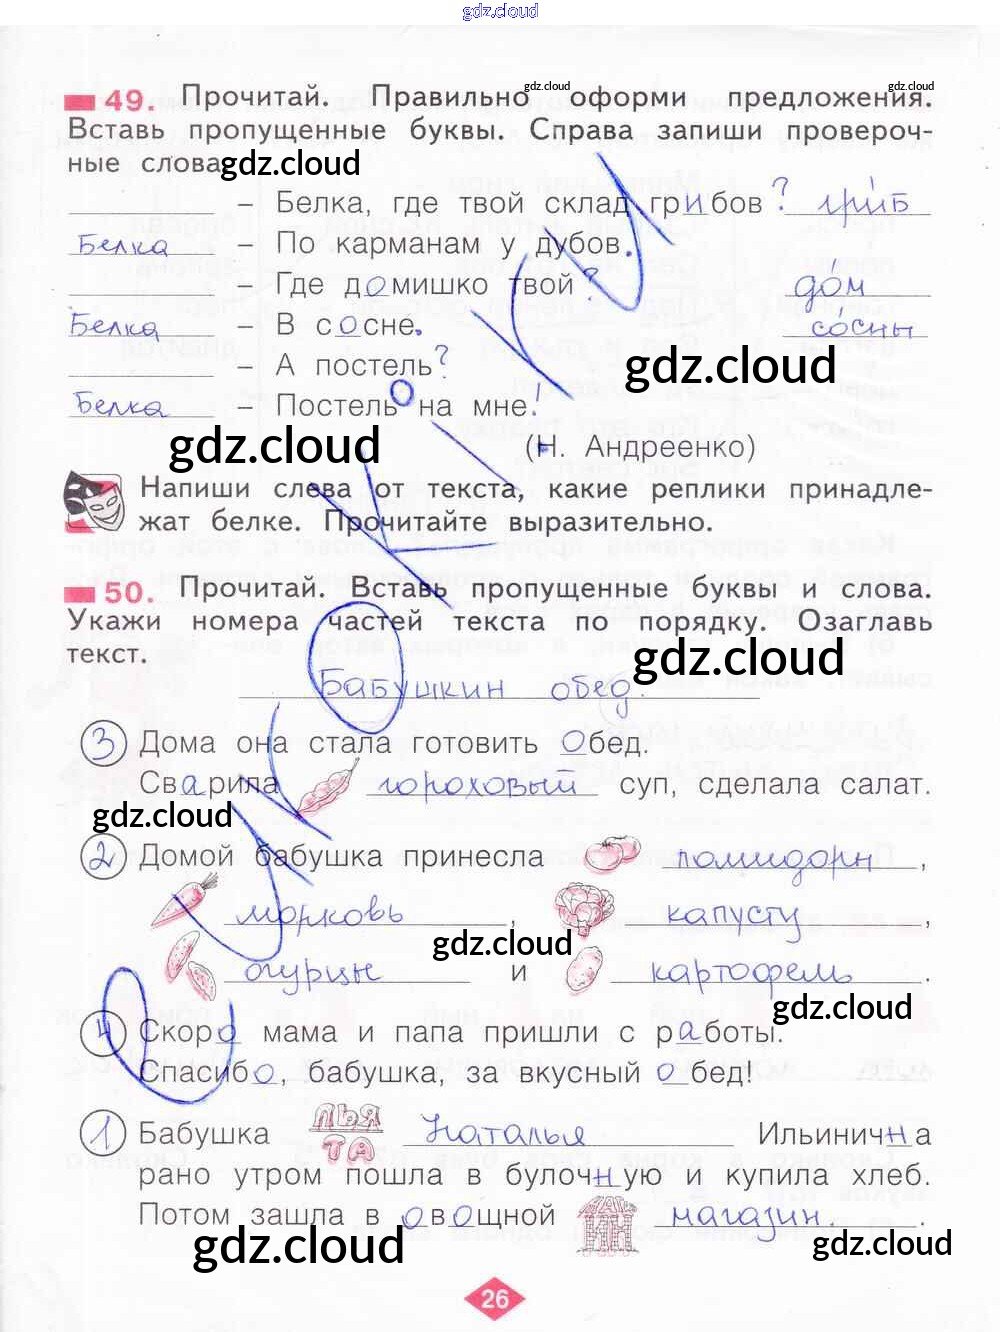 gdz.cloud
49. Прочитай. Правильно оформи предложения.
gdz.cloud gdz.cloud
Вставь пропущенные буквы. Справа запиши провероч-
ные слова.
gdz.cloud
– Белка, где твой склад грибов ? гриб
Белка – По карманам у дубов.
– Где домишко твой ? дом
Белка – В сосне. сосны
– А постель?
gdz.cloud
Белка – Постель на мне!
gdz.cloud
(Н. Андреенко)
Напиши слева от текста, какие реплики принадле-
жат белке. Прочитайте выразительно.
50. Прочитай. Вставь пропущенные буквы и слова.
Укажи номера частей текста по порядку. Озаглавь
текст.
gdz.cloud
Бабушкин обед.
3 Дома она стала готовить обед.
Сварила гороховый суп, сделала салат.
gdz.cloud gdz.cloud
2 Домой бабушка принесла помидоры ,
морковь , капусту ,
gdz.cloud
огурцы и картофель .
gdz.cloud
4 Скоро мама и папа пришли с работы.
Спасибо, бабушка, за вкусный обед!
1 Бабушка ЛЬЯ НАТА Наталья Ильинична
рано утром пошла в булочную и купила хлеб.
Потом зашла в овощной магазин. .
gdz.cloud gdz.cloud
26